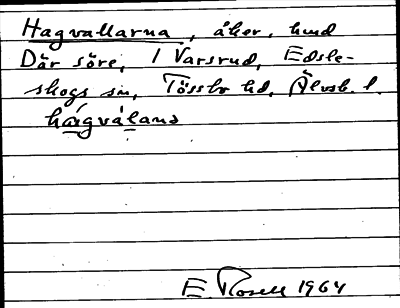 Hagvallarna, åker, hund
Där söre, 1 Varsrud, Edsle-
skogs sn, Tössbo hd, Älvsb. l.
hagvàlana
E. Rosell 1964